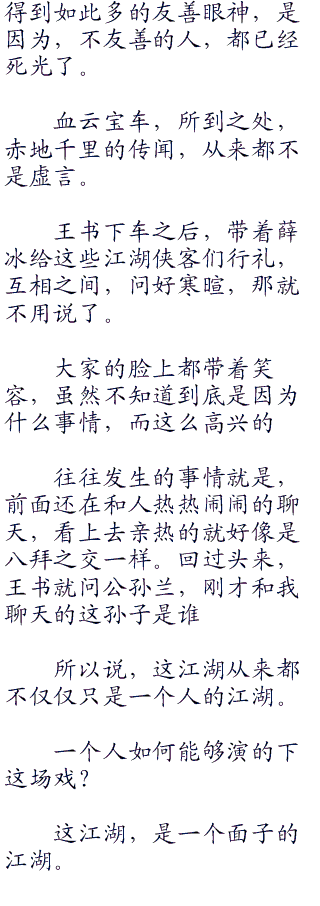 得到如此多的友善眼神，是
因为，不友善的人，都已经
死光了。
血云宝车，所到之处，
赤地千里的传闻，从来都不
是虚言。
王书下车之后，带着薛
冰给这些江湖侠客们行礼，
互相之间，问好寒暄，那就
不用说了。
大家的脸上都带着笑
容，虽然不知道到底是因为
什么事情，而这么高兴的
往往发生的事情就是，
前面还在和人热热闹闹的聊
天，看上去亲热的就好像是
八拜之交一样。回过头来，
王书就问公孙兰，刚才和我
聊天的这孙子是谁
所以说，这江湖从来都
不仅仅只是一个人的江湖。
一个人如何能够演的下
这场戏？
这江湖，是一个面子的
江湖。